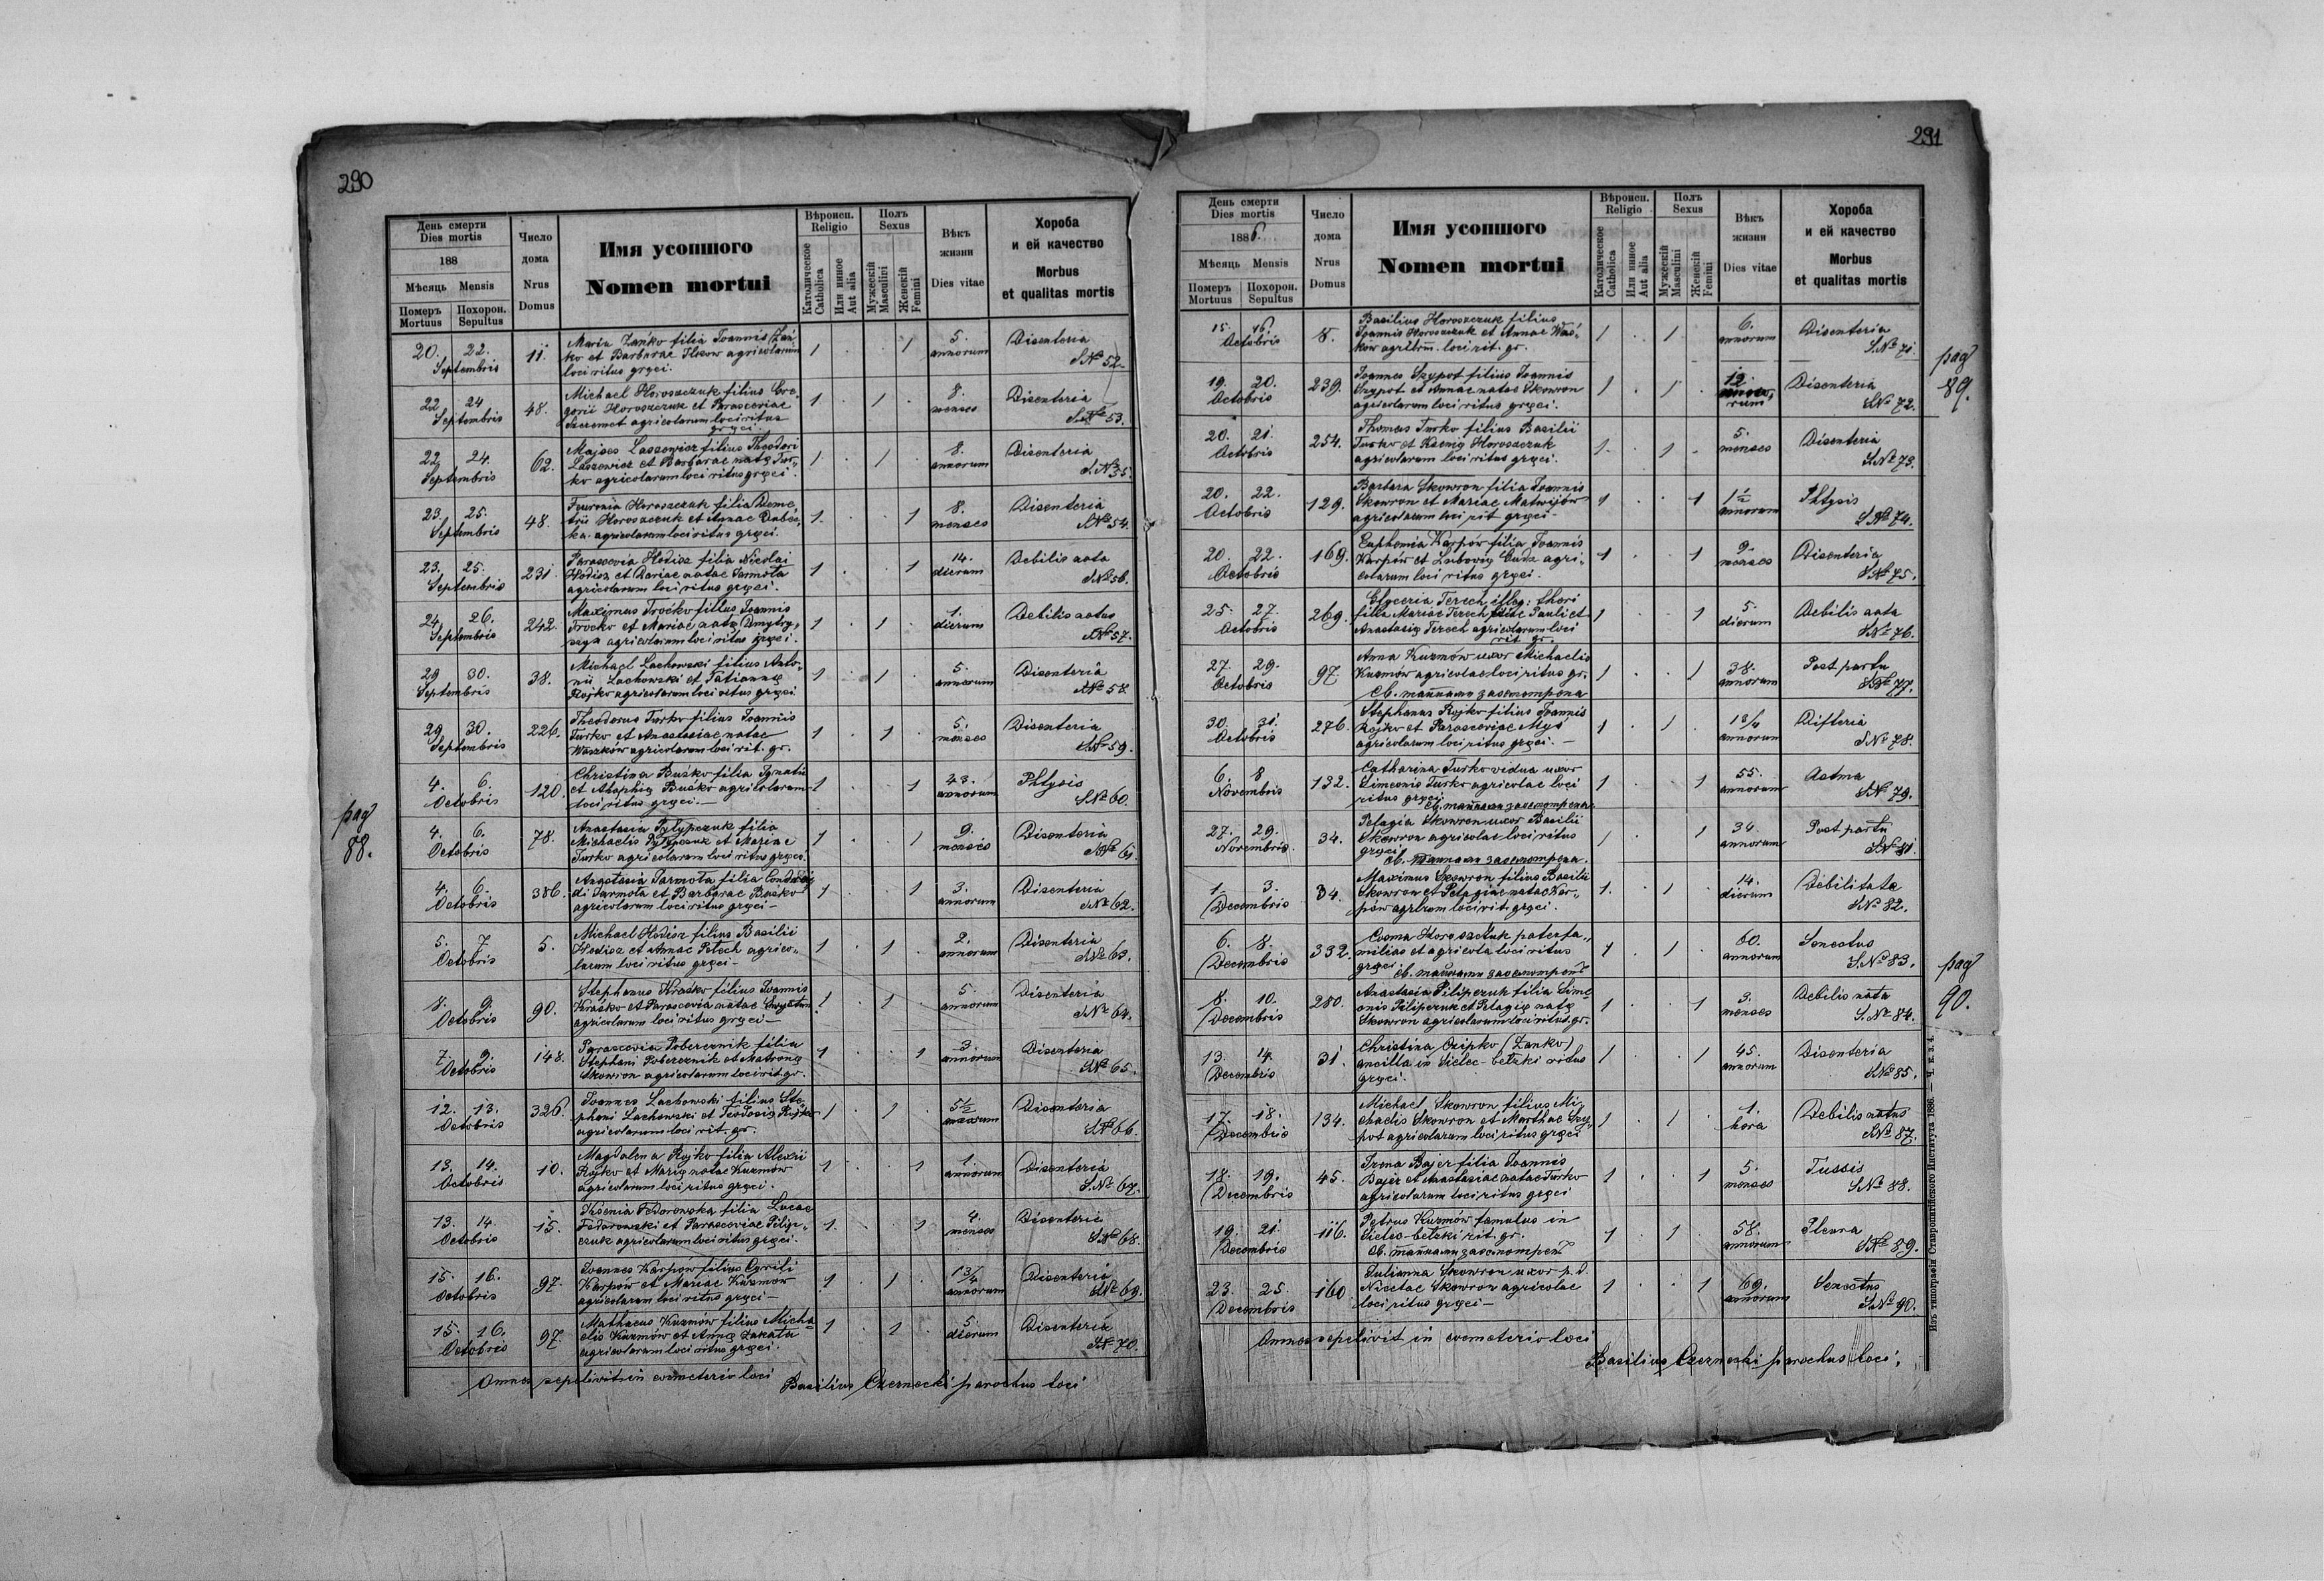 290
День смерти
Dies mortis
188
Мѣсяць Mensis
Померъ Mortuus
Похорон. Sepultus
Число дома Nrus Domus
Имя усопшого
Nomen mortui
Вѣроисп. Religio
Католическое Catholica
Или иное Aut alia
Полъ Sexus
Мужескій Masculini
Женскій Femini
Вѣкъ жизни Dies vitae
Хороба и ей качество
Morbus et qualitas mortis
20. 22. Septembris 11. Maria Zańko filia Joannis Zań-
ko et Barbarae agricolarum
loci ritus gręci. 1 . . 1 5. annorum Disenteria S№ 52.
22 24 Septembris 48. Michael Horoszczuk filius Gre-
gorii Horoszczuk et Parasceviae
Szeremet agricolarum loci ritus
gręci. 1 . 1 . 8. menses Disenteria S№ 53.
22. 24. Septembris 62. Mojses Laszewicz filius Theodori
Laszewicz et Barbarae natę Tur-
ko agricolarum loci ritus gręci. 1 . 1 . 8. annorum Disenteria S.№ 55.
23. 25. Septembris 48. Horoszczuk filia Deme-
trii Horoszczuk et Annae
agricolarum loci ritus gręci. 1 . . 1 8. menses Disenteria S№ 54.
23. 25. Septembris 231. Parascevia Hodisz filia Nicolai
Hodisz et Mariae natae Jarmoła
agricolarum loci ritus gręci. 1 . . 1 14. dierum Debilis nata S№ 56.
24. 26. Septembris 242. Maximus Troćko filius Joannis
Troćko et Mariae natę Dmytry-
agricolarum loci ritus gręci. 1 . 1 . 1. dierum Debilis natus S№ 57.
29 30. Septembris 38. Michael Lachowski filius Anto-
nii Lachowski et Tatiannę
Rojko agricolarum loci ritus gręci 1 . 1 . 5. annorum Disenteria S№ 58.
29 30. Septembris 226. Theodorus Turko filius Joannis
Turko et Anastasiae natae
Waszków agricolarum loci rit. gr. 1 . 1 . 5. menses Disenteria S№ 59.
4. 6. Octobris 120. Christina Buśko filia Ignatii
et Buśko agricolarum
loci ritus gręci.— 1 . . 1 43. annorum Phtysis S№ 60.
pag
88.
4. 6. Octobris 78. Anastasia Pylypczuk filia
Michaelis Pylypczuk et Mariae
Turko agricolarum loci ritus gręci. 1 . . 1 9. menses Disenteria S№ 61.
4. 6. Octobris 386. Anastasia Jarmoła filia
Jarmoła et Barbarae Buśko
agricolarum loci ritus gręci— 1 . . 1 3. annorum Disenteria S№ 62.
5. 7 Octobris 5. Michael Hodisz filius Basilii
Hodisz et Annae Petech agrico-
larum loci ritus gręci— 1 . 1 . 2. annorum Disenteria S№ 63.
8. 9. Octobris 90. Stephanus Kraśko filius Joannis
Kraśko et Parascevia natae
agricolarum loci ritus gręci— 1 . 1 . 5. annorum Disenteria S№ 64.
7 9. Octobris 148. Parascevia Pobereznik filia
Stephani Pobereznik et Matronę
Skowron agricolarum loci rit. gr. 1 . . 1 3. annorum Disenteria S№ 65.
12. 13. Octobris 326. Joannes Lachowski filius Ste-
phani Lachowski et Teodosię Rojko
agricolarum loci rit. gr. 1 . 1 . 5½ Disenteria S№ 66.
13. 14. Octobris 10. Magdalena Rojko filia Alexii
Rojko et Marię natae Kuzmów
agricolarum loci ritus gręci. 1 . . 1 1 annorum Disenteria S.№ 67.
13. 14. Octobris 15. Ksenia Fedorowska filia Lucae
Fedorowski et Parasceviae Pilip-
czuk agricolarum loci ritus gręci. 1 . . 1 4. menses Disenteria S№ 68.
15. 16. Octobris 97. Joannes Karpow filius Cyrili
Karpów et Mariae Kuzmow
agricolarum loci ritus gręci— 1 . 1 . 1¾ annorum Disenteria S№ 69.
15. 16. Octobris 97 Mathaeus Kuzmów filius Micha-
elis Kuzmów et Annę Zakała
agricolarum loci ritus gręci. 1 . 1 . 5. dierum Disenteria S№ 70.
Omnes sepelivit in coemeterio loci
Basilius Czernecki parochus loci
291
День смерти
Dies mortis
1886.
Мѣсяць Mensis
Померъ Mortuus
Похорон. Sepultus
Число дома Nrus Domus
Имя усопшого
Nomen mortui
Вѣроисп. Religio
Католическое Catholica
Или иное Aut alia
Полъ Sexus
Мужескій Masculini
Женскій Femini
Вѣкъ жизни Dies vitae
Хороба и ей качество
Morbus et qualitas mortis
15. 16. Octobris 8. Basilius Horoszczuk filius
Joannis Horoszczuk et Annae Waś-
kow loci rit. gr. 1 . 1 6. annorum Disenteria S.№ 71.
pag
89.
19. 20. Octobris 239. Joannes Snypot filius Joannis
Snypot et Annae natae Skowron
agricolarum loci ritus gręci. 1 . 1 . 12. Disenteria S№ 72.
20. 21. Octobris 254. Thomas Turko filius Basilii
Turko et Ksenię Horoszczuk
agricolarum loci ritus gręci. 1 . 1 . 5. menses Disenteria S№ 73.
20. 22. Octobris 129. Barbara Skowron filia Joannis
Skowron et Mariae Matwijów
agricolarum loci rit gręci— 1 . . 1 1½ annorum Phtysis S№ 74.
20. 22. Octobris 169. Euphemia Karpów filia Joannis
Karpów et agri-
colarum loci ritus gręci. 1 . . 1 9. menses Disenteria S№ 75.
25. 27. Octobris 269. Glyceria Terech illeg: thori
filia Mariae Terech filiae Pauli et
Anastasię Terech agricolarum loci
rit gr. 1 . . 1 5. dierum Debilis nata S№ 76.
27. 29. Octobris 97 Anna Kuzmów uxor Michaelis
Kuzmów agricolae loci ritus gr.
Св. тайнами засмотрена 1 . . 1 38. annorum Post partu S№ 77.
30. 31. Octobris 276. Stephanus Rojko filius Joannis
Rojko et Parasceviae Myś
agricolarum loci ritus gręci.— 1 . 1 . 1¾ annorum Difteria S№ 78.
6. 8 Novembris 132. Catharina Turko vidua uxor
Simeonis Turko agricolae loci
ritus gręci
Св. тайнами засмотрена 1 . . 1 55. annorum Astma S№ 79.
27. 29. Novembris. 34. Pelagia Skowron uxor Basilii
Skowron agricolae loci ritus
gręci
Св. тайнами засмотрена. 1 . . 1 34. annorum Post partu S№ 81.
1 3. Decembris 34. Maximus Skowron filius Basilii
Skowron et Pelagiae natae Kar-
pów loci rit. gręci. 1 . 1 . 14. dierum Debilitate S№ 82.
6. 8. Decembris 332. Cosma Horoszczuk paterfa-
milias et agricola loci ritus
gręci Св. тайнами засмотрен 1 . 1 . 60. annorum Senectus S.№ 83.
pag
90.
8. 10. Decembris 280. Anastasia Pilipczuk filia Sime-
onis Pilipczuk et Pelagię natę
Skowron agricolarum loci ritus gr. 1 . . 1 3. menses Debilis nata S.№ 84.
13. 14. Decembris 31. Christina Czipko (Zanko)
ancilla in Sielec-bełzki ritus
gręci. 1 . . 1 45. annorum Disenteria S№ 85.
17. 18. Decembris 134. Michael Skowron filius Mi-
chaelis Skowron et Marthae Sny-
pot agricolarum loci ritus gręci 1 . 1 . 1. hora Debilis natus S№ 87.
18. 19. Decembris 45. Irena Bajer filia Joannis
Bajer et Anastasiae natae Turko
agricolarum loci ritus gręci 1 . . 1 5. menses Tussis S№ 88.
19. 21. Decembris 116. Petrus Kuzmów famulus in
Sielec-bełzki rit. gr.
Св. тайнами засмотрен 1 . 1 58. annorum Pleura S№ 89.
23. 25. Decembris 160 Julianna Skowron uxor p.d.
Nicetae Skowron agricolae
loci ritus gręci— 1 . . 1 69. annorum Senectus S.№ 90.
Omnes sepelivit in coemeterio loci
Basilius Czernecki parochus loci.
Изъ типографіи Ставропигійского Института 1886. — Ч. к. з. 4.